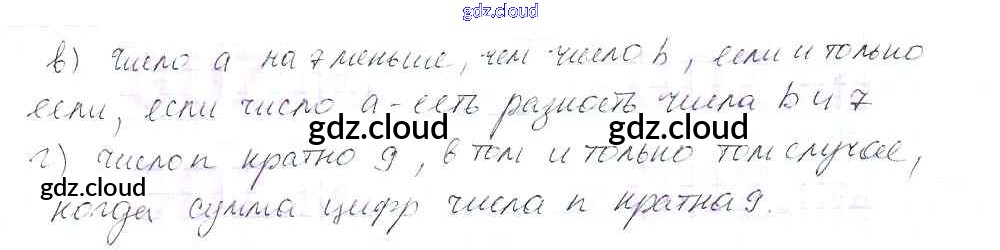 gdz.cloud
в) число a на 7 меньше, чем число b, если и только
если, если число a - есть разность числа b и 7
gdz.cloud gdz.cloud
г) число n кратно 9, в том и только том случае,
gdz.cloud
когда сумма цифр числа n кратна 9.